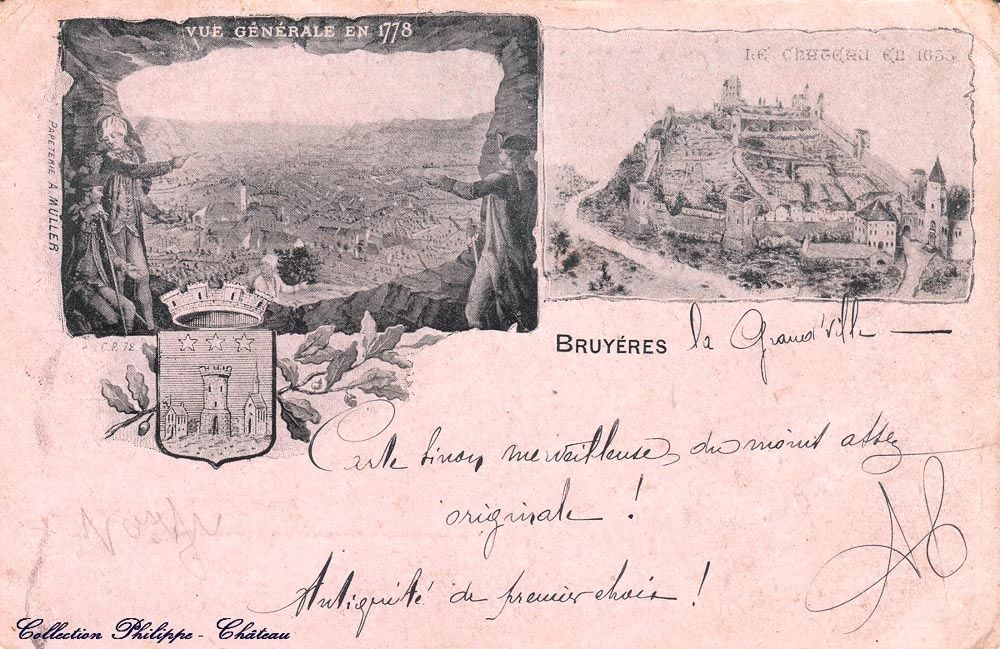 VUE GÉNÉRALE EN 1778
LE CHATEAU EN 1635
PAPETERIE A. MULLER
C.P. 72
BRUYÉRES la Grand'ville
Carte sinon merveilleuse, du moins assez
originale !
Antiquité de premier choix !
Collection Philippe - Château